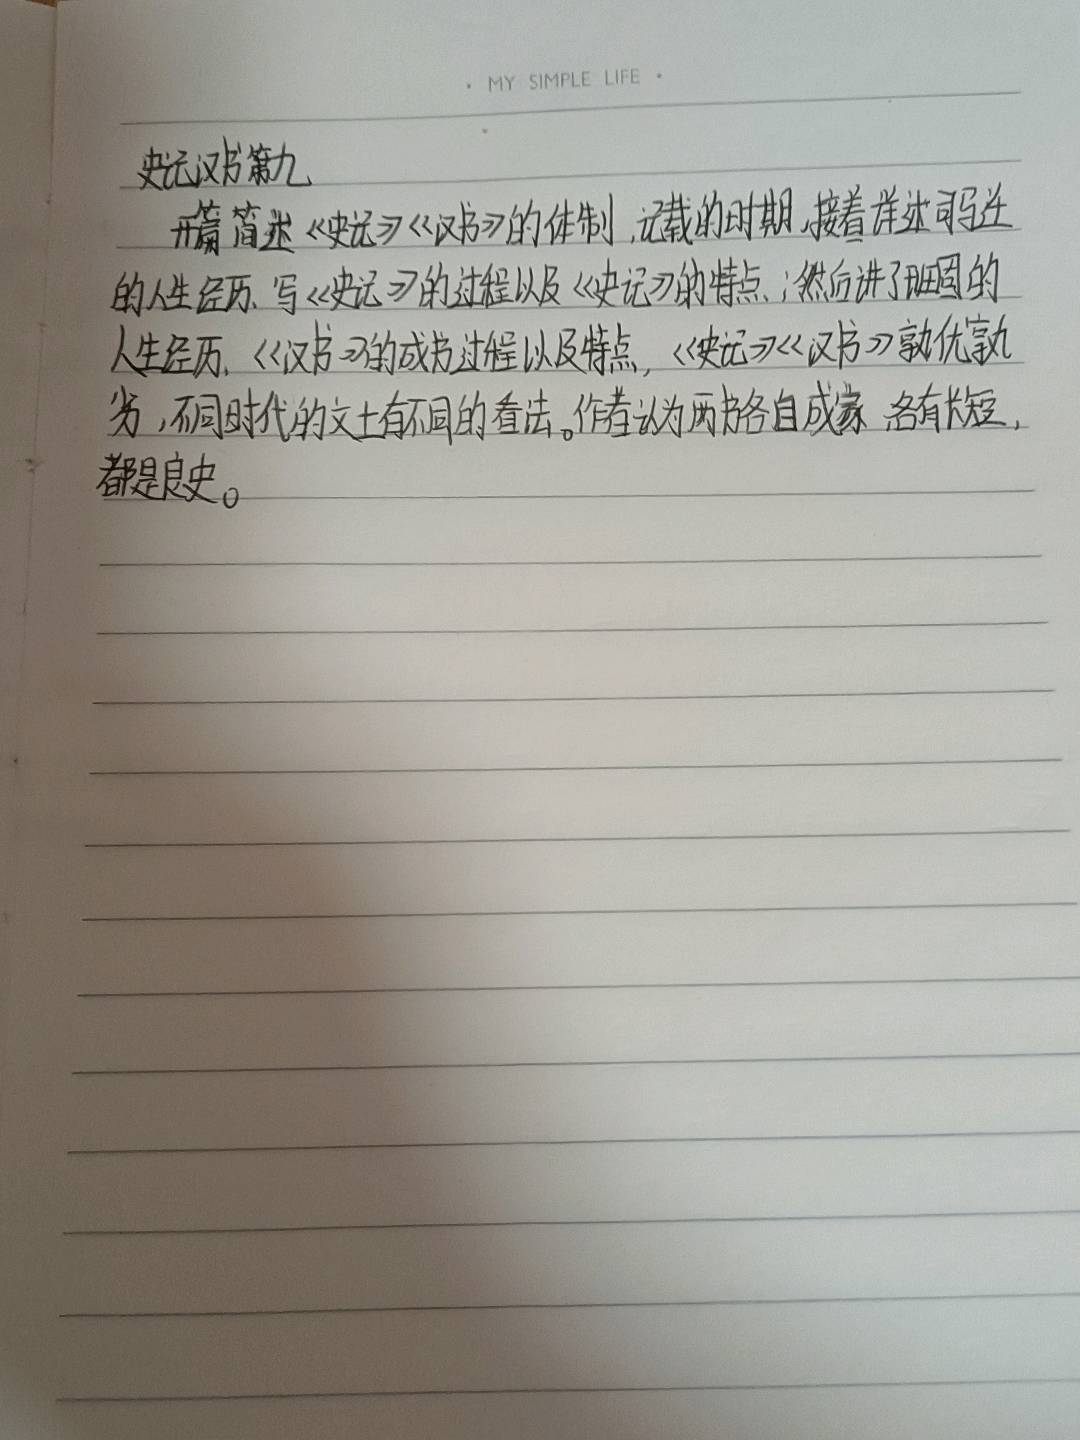 · MY SIMPLE LIFE ·
史记汉书第九
开篇简述《史记》《汉书》的体制、记载的时期,接着详述司马迁
的人生经历、写《史记》的过程以及《史记》的特点;然后讲了班固的
人生经历、《汉书》的成书过程以及特点,《史记》《汉书》孰优孰
劣,不同时代的文士有不同的看法。作者认为两书各自成家 各有长短,
都是良史。